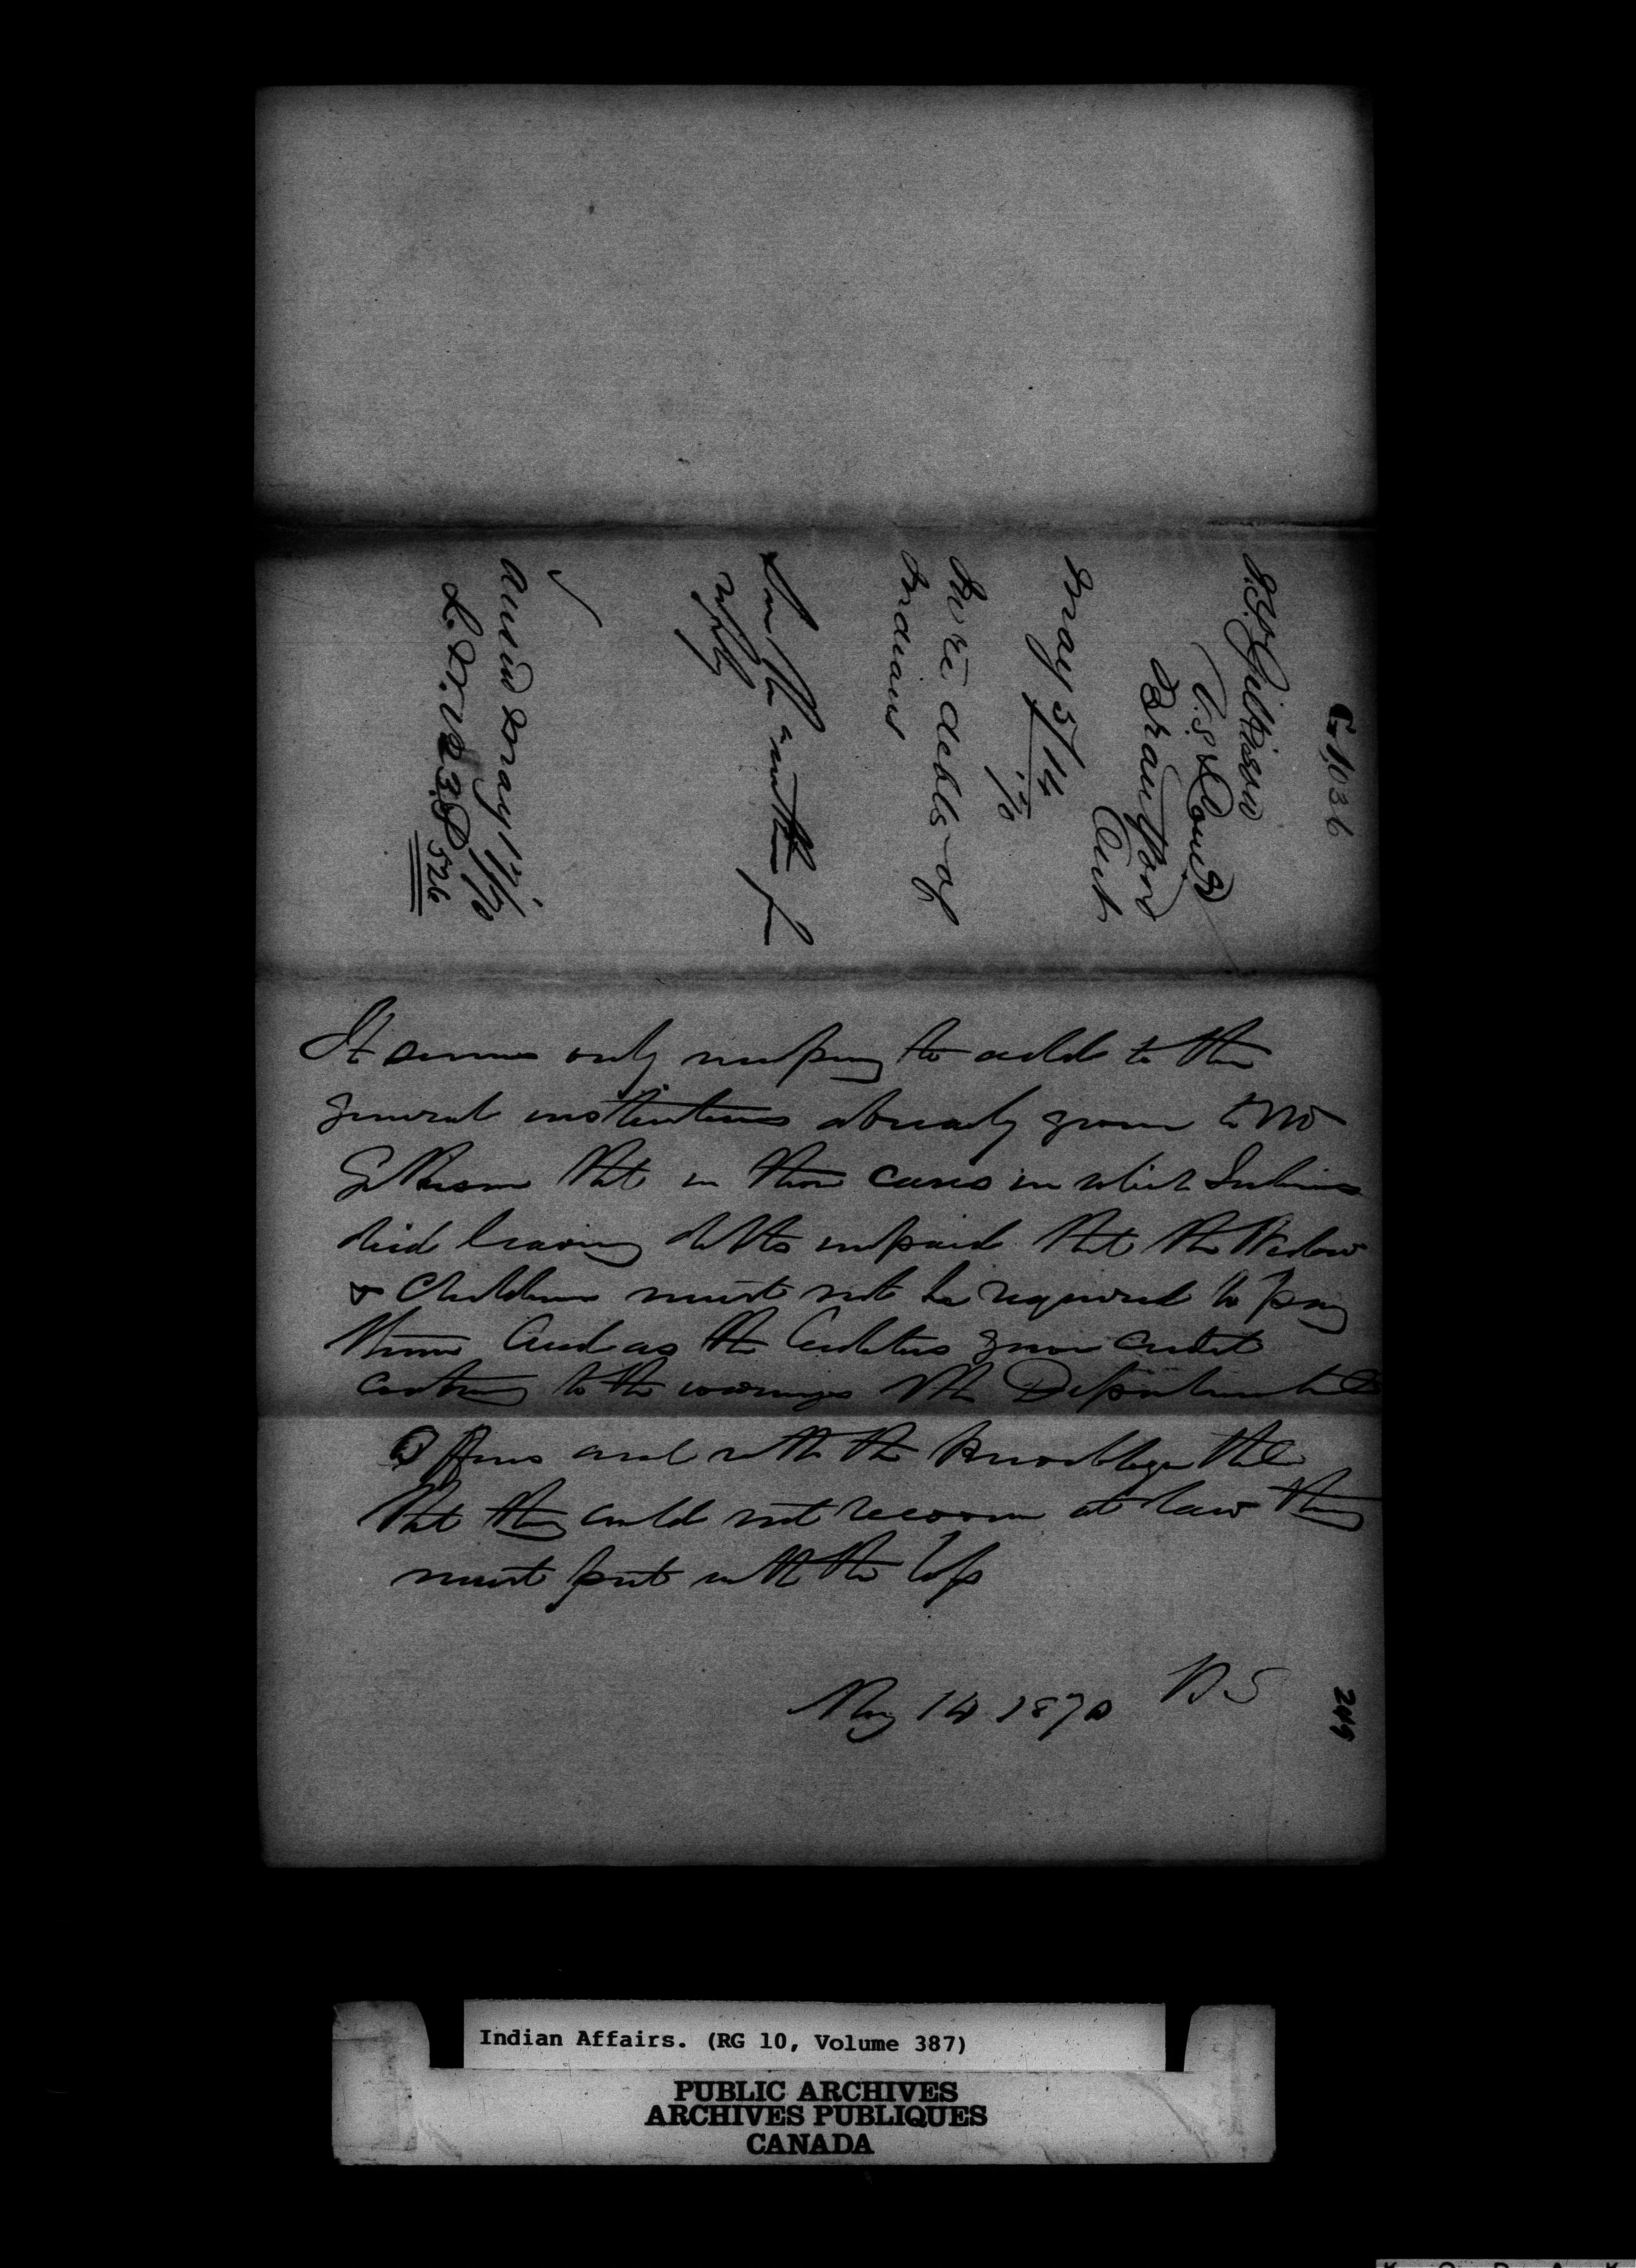 G 1036
J. T. Gilkison
V. S. & Com.r
Brantford
Ont
May 5/14
70
In re debts of
Indians
See the within for
reply
Ansd May 17/70
L. B. No 23 P 526
It seems only necessary to add to the
general instructions already given to Mr
Gilkison that in those cases in which Indians
died leaving debts unpaid that the Widow
& Children must not be required to pay
them And as the Creditors gave credit
contrary to the warnings of the Departmental
Officers and with the knowledge
that they could not recover at law they
must put with the loss
May 14 1870
244
Indian Affairs. (RG 10, Volume 387)
PUBLIC ARCHIVES
ARCHIVES PUBLIQUES
CANADA